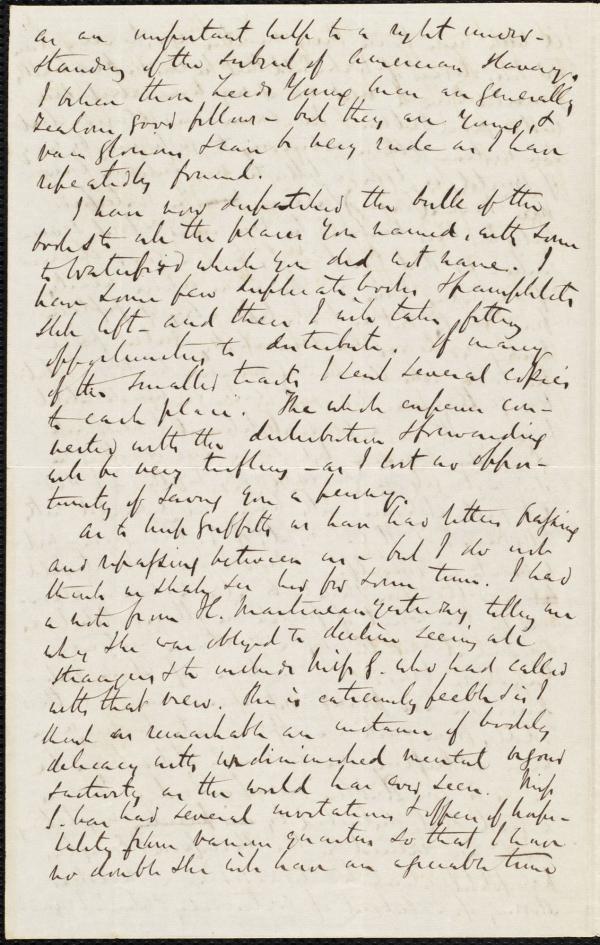 as an important help to a right under-
standing of the subject of American Slavery.
I believe those Leeds Young Men are generally
zealous, good fellows - but they are Young, &
vain glorious & can be very rude as I have
repeatedly found.
I have now dispatched the bulk of the
books to all the places you named, with some
to Waterford which you did not name. I
have some few duplicate books & pamphlets
still left - and these I will take fitting
opportunities to distribute. Of many
of the smaller tracts I send several copies
to each place. The whole expense con-
nected with the distribution & forwarding
will be very trifling - as I lost no oppor-
tunity of saving you a penny.
As to Miss Griffitts we have had letters passing
and repassing between us - but I do not
think we shall see her for some time. I had
a note from H. Martineau yesterday telling me
why she was obliged to decline seeing all
strangers & to include Miss G. who had called
with that view. She is extremely feeble & is I
think as remarkable an instance of bodily
delicacy with undiminished mental vigour
& activity as the world has ever seen. Miss
G. has had several invitations & offers of hospi-
tality from various quarters so that I have
no doubt she will have an agreeable time